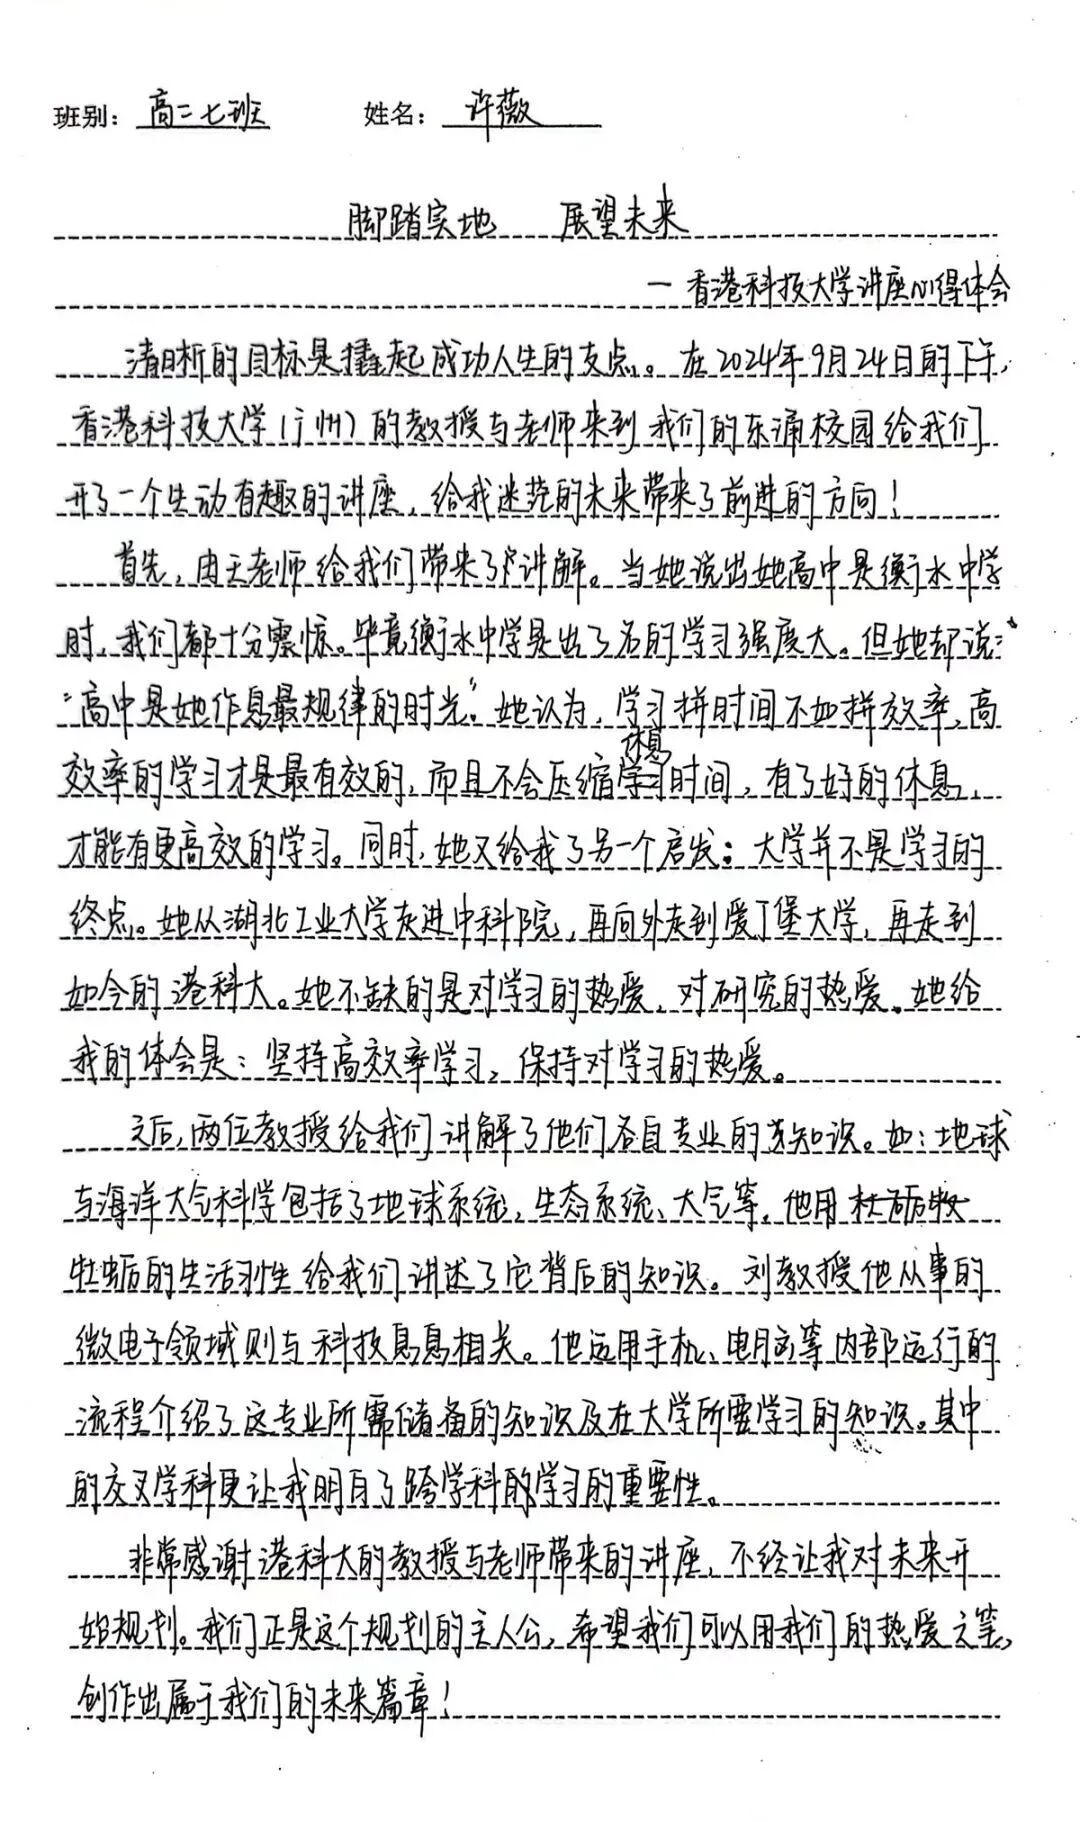 班别：高二七班 姓名：许薇
脚踏实地 展望未来
一香港科技大学讲座心得体会
清晰的目标是撬起成功人生的支点。在2024年9月24日的下午，
香港科技大学（广州）的教授与老师来到我们的东涌校园给我们
开了一个生动有趣的讲座，给我迷茫的未来带来了前进的方向！
首先，由王老师给我们带来了讲解。当她说出她高中是衡水中学
时，我们都十分震惊。毕竟衡水中学是出了名的学习强度大。但她却说：
“高中是她作息最规律的时光”。她认为，学习拼时间不如拼效率，高
效率的学习才是最有效的，而且不会压缩休息时间，有了好的休息，
才能有更高效的学习。同时，她又给我了另一个启发：大学并不是学习的
终点。她从湖北工业大学去进中科院，再向外走到爱丁堡大学，再走到
如今的港科大。她不缺的是对学习的热爱，对研究的热爱。她给
我的体会是：坚持高效率学习，保持对学习的热爱。
之后，两位教授给我们讲解了他们各自专业的知识。如：地球
与海洋大气科学包括了地球系统，生态系统、大气等。他用
牡蛎的生活习性给我们讲述了它背后的知识。刘教授他从事的
微电子领域则与科技息息相关。他运用手机、电脑等内部运行的
流程介绍了这专业所需储备的知识及在大学所要学习的知识。其中
的交叉学科更让我明白了跨学科的学习的重要性。
非常感谢港科大的教授与老师带来的讲座，不经让我对未来开
始规划。我们正是这个规划的主人公，希望我们可以用我们的热爱之笔，
创作出属于我们的未来篇章！